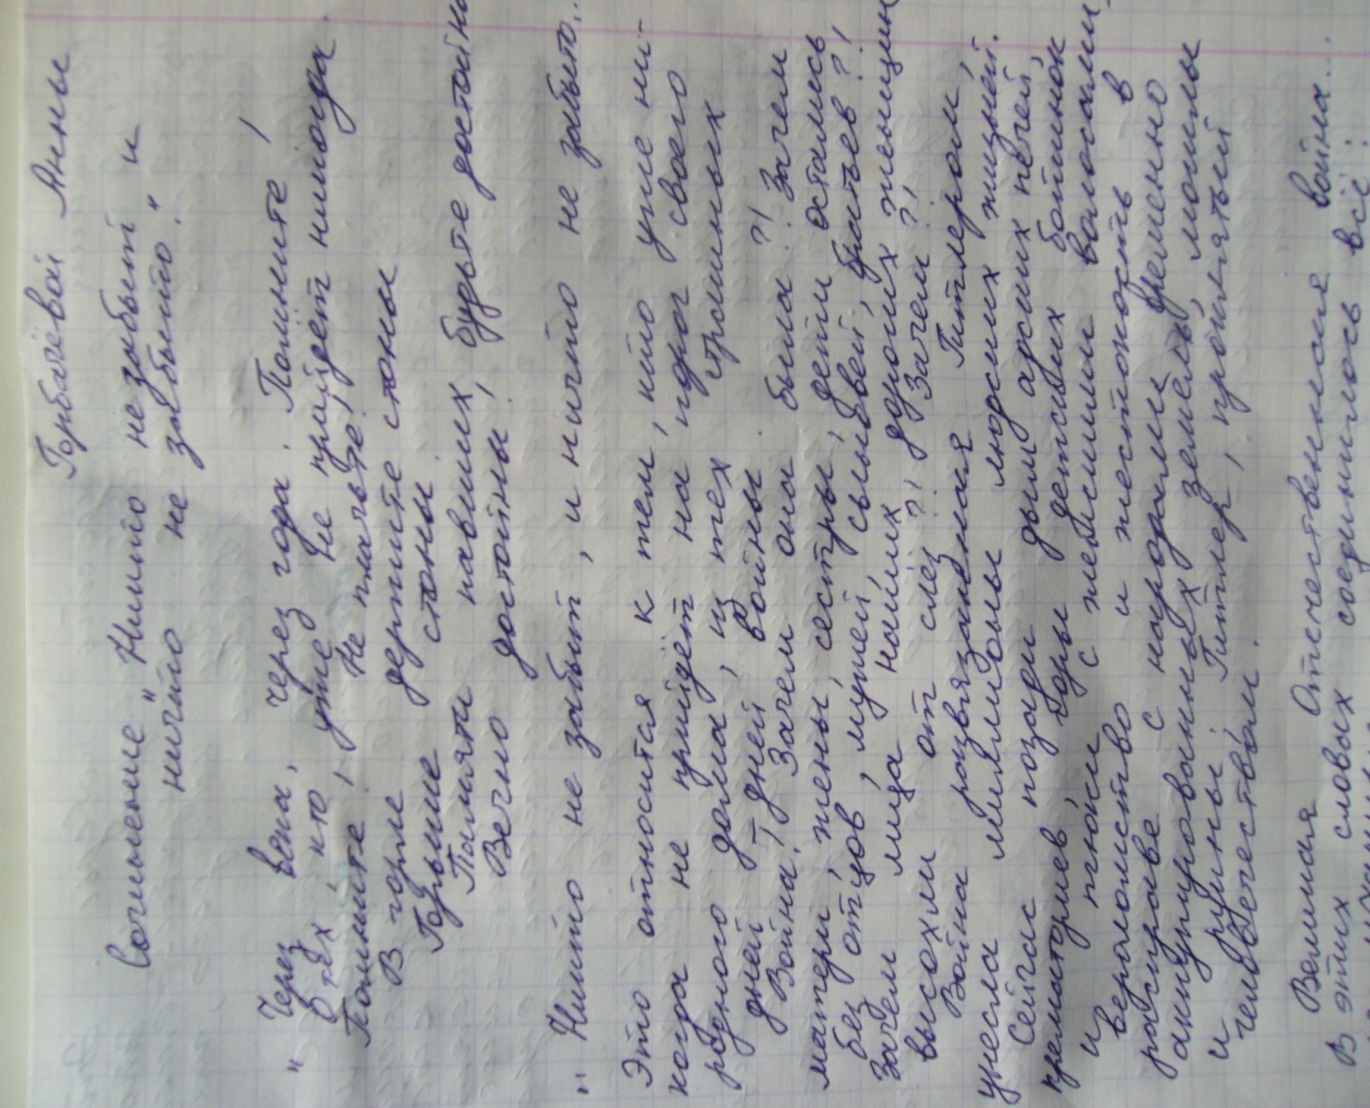 Горбачёвой Анны
Сочинение „Никто не забыт и
ничто не забыто."
„Через века, через года. Помните!
О тех, кто уже не придёт никогда.
Помните! Не плачьте!
В горле держите стоны
Горькие стоны
Памяти павших будьте достойны
Вечно достойны!
„Никто не забыт, и ничто не забыто..
Это относится к тем, кто уже ни-
когда не придёт на порог своего
родного дома, из тех страшных
дней – дней войны.
Война! Зачем она была?! Зачем
матери, жены, сестры, дети остались
без отцов, мужей, сыновей, братьев?!
Зачем лица наших дорогих женщин
высохли от слёз?! Зачем?!
Война развязанная Гитлером,
унесла миллионы людских жизней.
Сейчас позади дым адских печей,
крематориев, горы детских ботинок
и тюки с небесными волосами,
вероломство и жестокость в
расправе с народами временно
аннупированных земель, могилы
и руины. Гитлер, проклятый
человечеством.
Великая Отечественная война...
В этих словах соединилось всё: